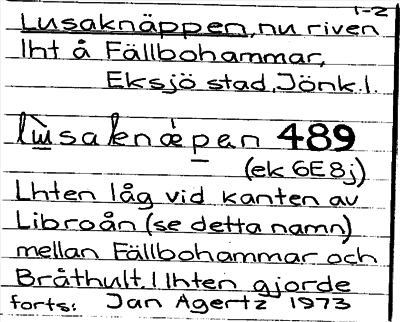 1-2
Lusaknäppen, nu riven
lht å Fällbohammar,
Eksjö stad, Jönk. l.
489
(ek 6E8j)
Lhten låg vid kanten av
Libroån (se detta namn)
mellan Fällbohammar och
Bråthult. I lhten gjorde
forts: Jan Agertz 1973